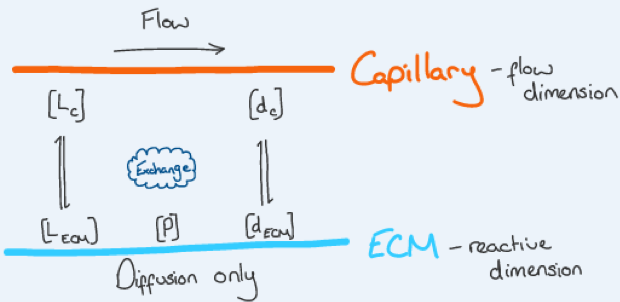 Flow
Capillary - flow
dimension
[Lc] [dc]
Exchange
[LECM] [P] [dECM]
ECM - reactive
dimension
Diffusion only